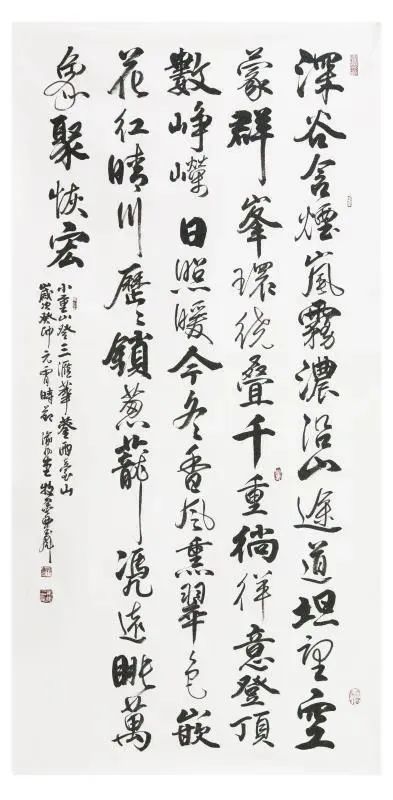 深谷含煙嵐霧濃沿山途道坦望空
蒙群峯環繞叠千重徜徉意登頂
數崢嶸日照暖今冬香風熏翠色嵌
花紅晴川歷〻鎖蔥蘢憑遠眺萬
象聚恢宏
小重山登三滙華蓥西象山
歲次癸卯元宵時節渝州